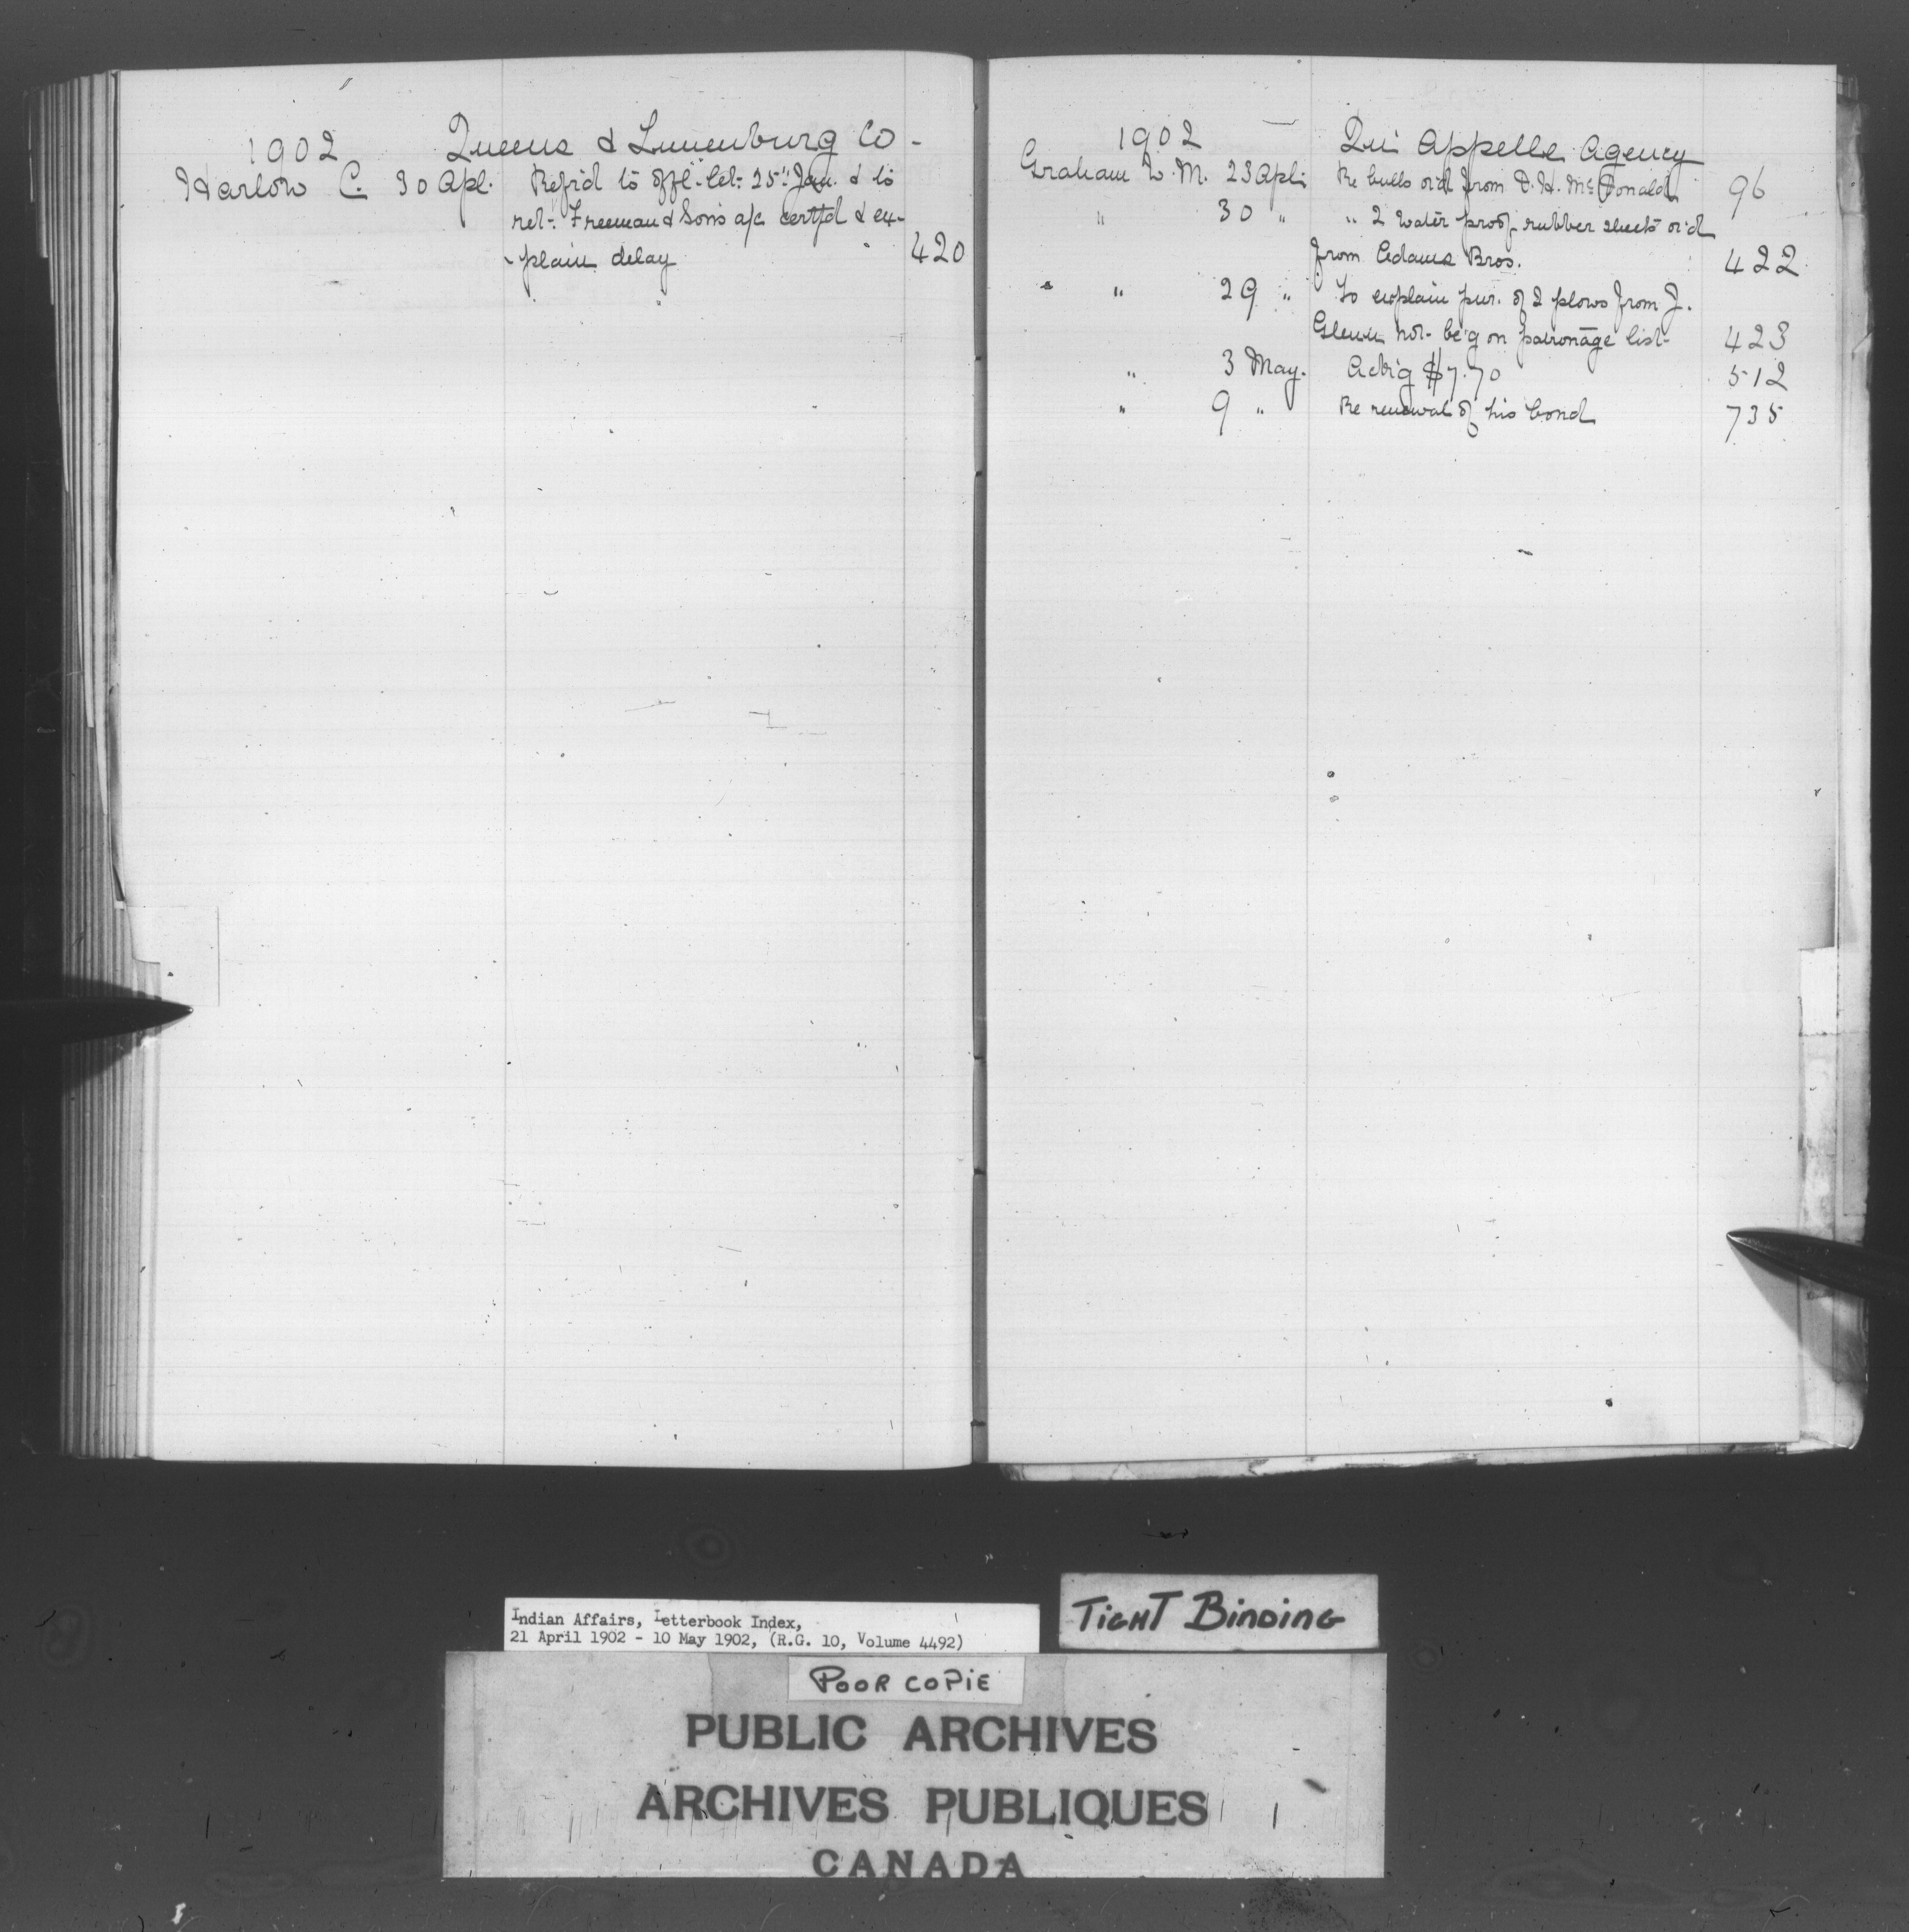 1902 Queens & Lunenburg Co -
Harlow C. 30 Apl. Refr'd to offl. let. 25" Jan. & to
ret. Freeman & Sons a/c certfd & ex-
plain delay 420
1902 Qui Appelle Agency
Graham W. M. 23 Apl. Re bulls or'd from D. H. McDonald 96
" 30 " " 2 water proof rubber sheets or'd
from Adams Bros. 422
" " 29 " To explain pur. of 2 plows from J.
Glenn not be'g on patronage list 423
" 3 May. Ack'g $7.70 512
" 9 " Re renewal of his bond 735
Indian Affairs, Letterbook Index,
21 April 1902 - 10 May 1902, (R.G. 10, Volume 4492)
TIGHT BINDING
POOR COPIE
PUBLIC ARCHIVES
ARCHIVES PUBLIQUES
CANADA